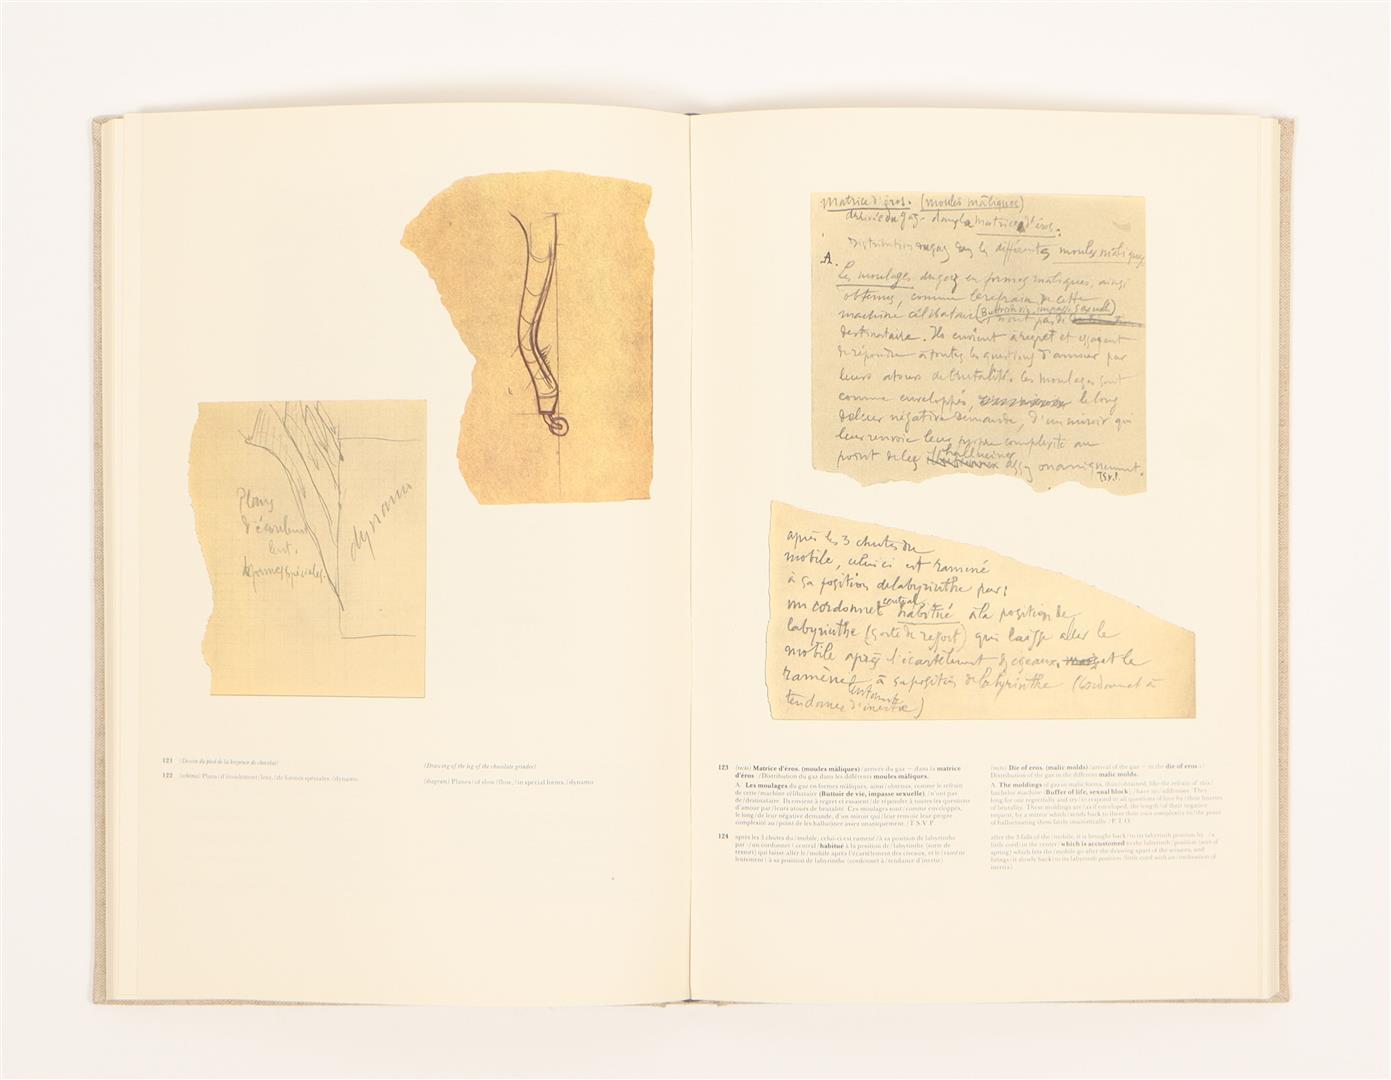 Plans
d'écoulement
lent,
de formes spéciales.
dynamo
121 (Dessin du pied de la broyeuse de chocolat)
122 (schéma) Plans / d'écoulement / lent, / de formes spéciales. / dynamo
(Drawing of the leg of the chocolate grinder)
(diagram) Planes / of slow / flow, / in special forms. / dynamo
matrice d'éros. (moules mâliques)
arrivée du gaz - dans la matrice d'éros.
Distribution du gaz dans les différents moules mâliques
A.
Les moulages du gaz en formes mâliques, ainsi
obtenus, comme le refrain de cette
machine célibataire (Buttoir de vie, impasse sexuelle)
n'ont pas de
destinataire. Ils envient à regret et essayent
de répondre à toutes les questions d'amour par
leurs atours de brutalité. Ces moulages sont
comme enveloppés, le long
de leur négative demande, d'un miroir qui
leur renvoie leur propre complexité au
point de les halluciner assez onaniquement.
T.S.V.P.
après les 3 chutes du
mobile, celui ci est ramené
à sa position de labyrinthe par:
un cordonnet central habitué à la position de
labyrinthe (sorte de ressort) qui laisse aller le
mobile après l'écartèlement des ciseaux, et le
ramène lentement à sa position de labyrinthe (cordonnet à
tendance d'inertie)
123 (recto) Matrice d'éros. (moules mâliques) / arrivée du gaz — dans la matrice
d'éros / Distribution du gaz dans les différents moules mâliques.
A. Les moulages du gaz en formes mâliques, ainsi / obtenus, comme le refrain
de cette / machine célibataire (Buttoir de vie, impasse sexuelle), / n'ont pas
de / destinataire. Ils envient à regret et essaient / de répondre à toutes les questions
d'amour par / leurs atours de brutalité. Ces moulages sont / comme enveloppés,
le long / de leur négative demande, d'un miroir qui / leur renvoie leur propre
complexité au / point de les halluciner assez onaniquement. / T.S.V.P.
124 après les 3 chutes du / mobile, celui-ci est ramené / à sa position de labyrinthe
par : / un cordonnet ( central / habitué à la position de / labyrinthe (sorte de
ressort) qui laisse aller le / mobile après l'écartèlement des ciseaux, et le / (ramène
lentement ) à sa position de labyrinthe (cordonnet à / tendance d'inertie)
(recto) Die of eros. (malic molds) / arrival of the gas — in the die of eros /
Distribution of the gas in the different malic molds.
A. The moldings of gas in malic forms, thus / obtained, like the refrain of this /
bachelor machine (Buffer of life, sexual block), / have no / addressee. They
long for one regretfully and try / to respond to all questions of love by / their fineries
of brutality. These moldings are / as if enveloped, the length / of their negative
request, by a mirror which / sends back to them their own complexity to / the point
of hallucinating them fairly onanistically. / P.T.O.
after the 3 falls of the / mobile, it is brought back / to its labyrinth position by : / a
little cord ( in the center / which is accustomed to the labyrinth / position (sort of
spring) which lets the / mobile go after the drawing apart of the scissors, and
brings / it slowly back ) to its labyrinth position (little cord with an / inclination of
inertia)